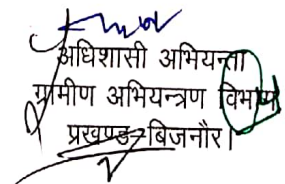 अधिशासी अभियन्ता
ग्रामीण अभियन्त्रण विभाग
प्रखण्ड-बिजनौर।